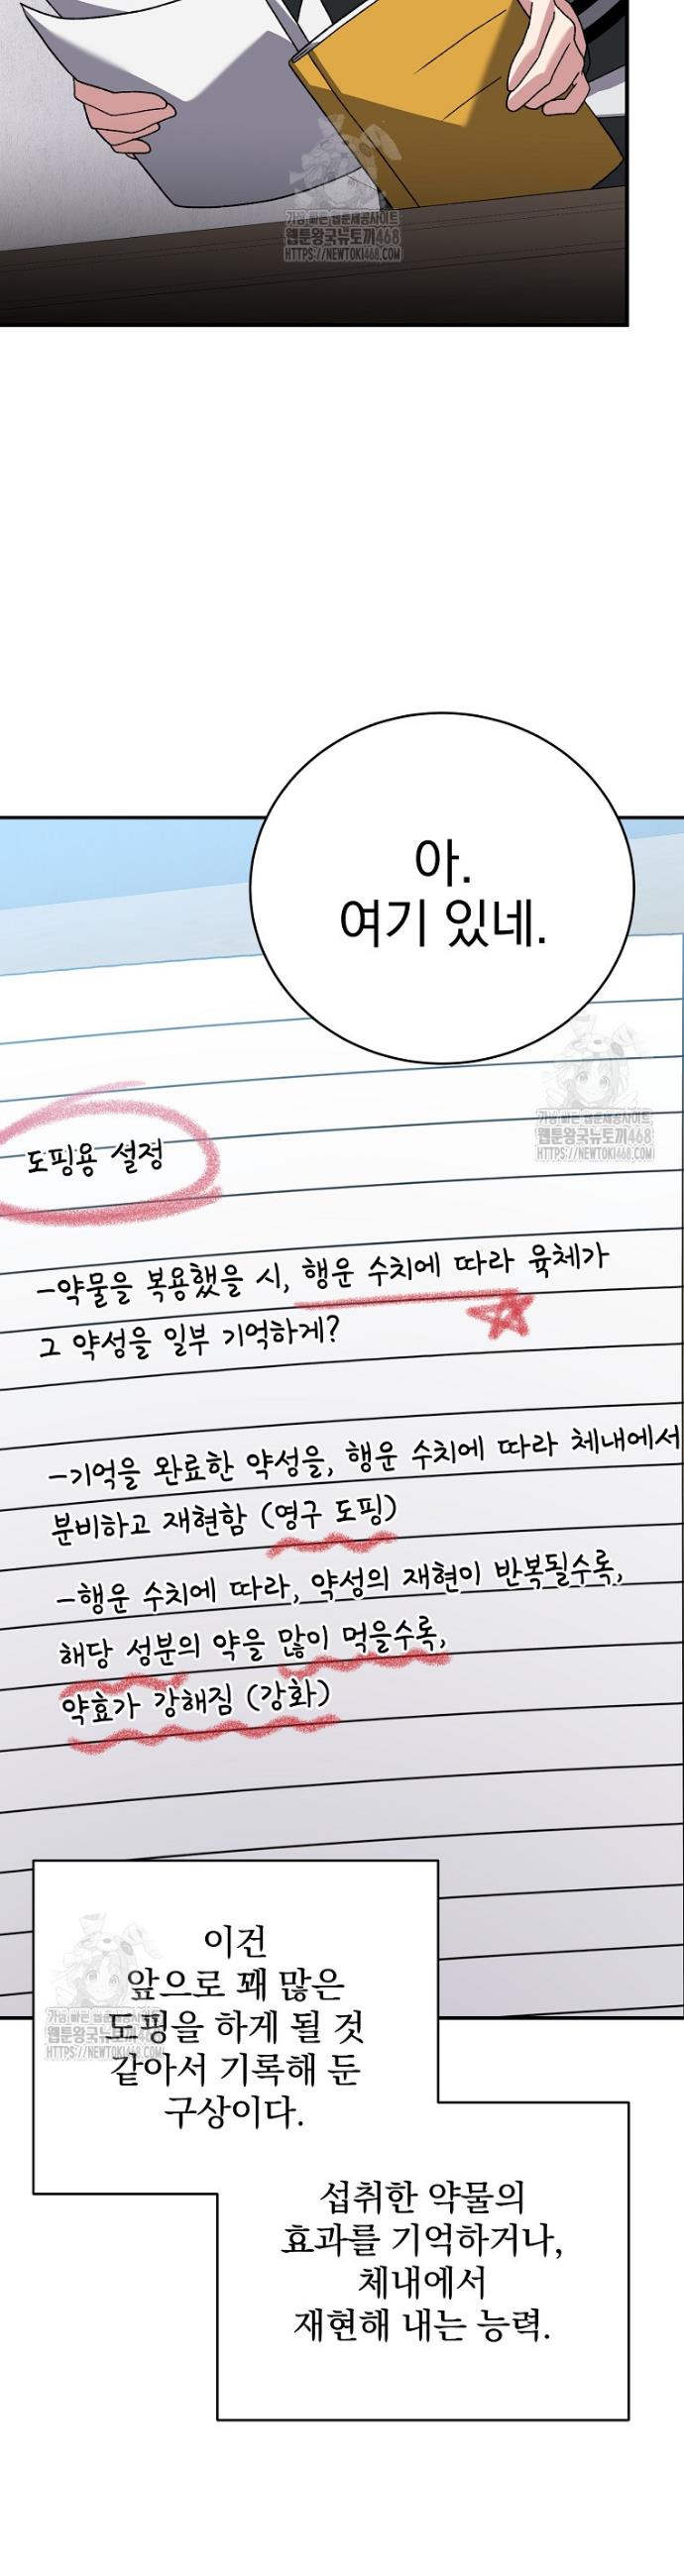 가장 빠른 웹툰제공사이트
웹툰왕국뉴토끼468
HTTPS://NEWTOKI468.COM
아.
여기 있네.
가장 빠른 웹툰제공사이트
웹툰왕국뉴토끼468
HTTPS://NEWTOKI468.COM
도핑용 설정
-약물을 복용했을 시, 행운 수치에 따라 육체가
그 약성을 일부 기억하게?
-기억을 완료한 약성을, 행운 수치에 따라 체내에서
분비하고 재현함 (영구 도핑)
-행운 수치에 따라, 약성의 재현이 반복될수록,
해당 성분의 약을 많이 먹을수록,
약효가 강해짐 (강화)
이건
앞으로 꽤 많은
도핑을 하게 될 것
같아서 기록해 둔
구상이다.
가장 빠른 웹툰제공사이트
웹툰왕국뉴토끼468
HTTPS://NEWTOKI468.COM
섭취한 약물의
효과를 기억하거나,
체내에서
재현해 내는 능력.